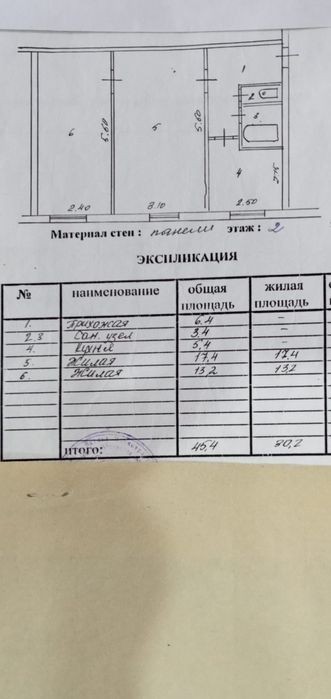 1
2
3
6
5
4
5.60
5.60
2.40
3.10
2.50
Материал стен : панели этаж : 2
ЭКСПЛИКАЦИЯ
№ наименование общая площадь жилая площадь
1. Прихожая 6,4 -
2.3 Сан. узел 3,4 -
4. Кухня 5,4 -
5. Жилая 17,4 17,4
6. Жилая 13,2 13,2
итого: 45,4 30,2